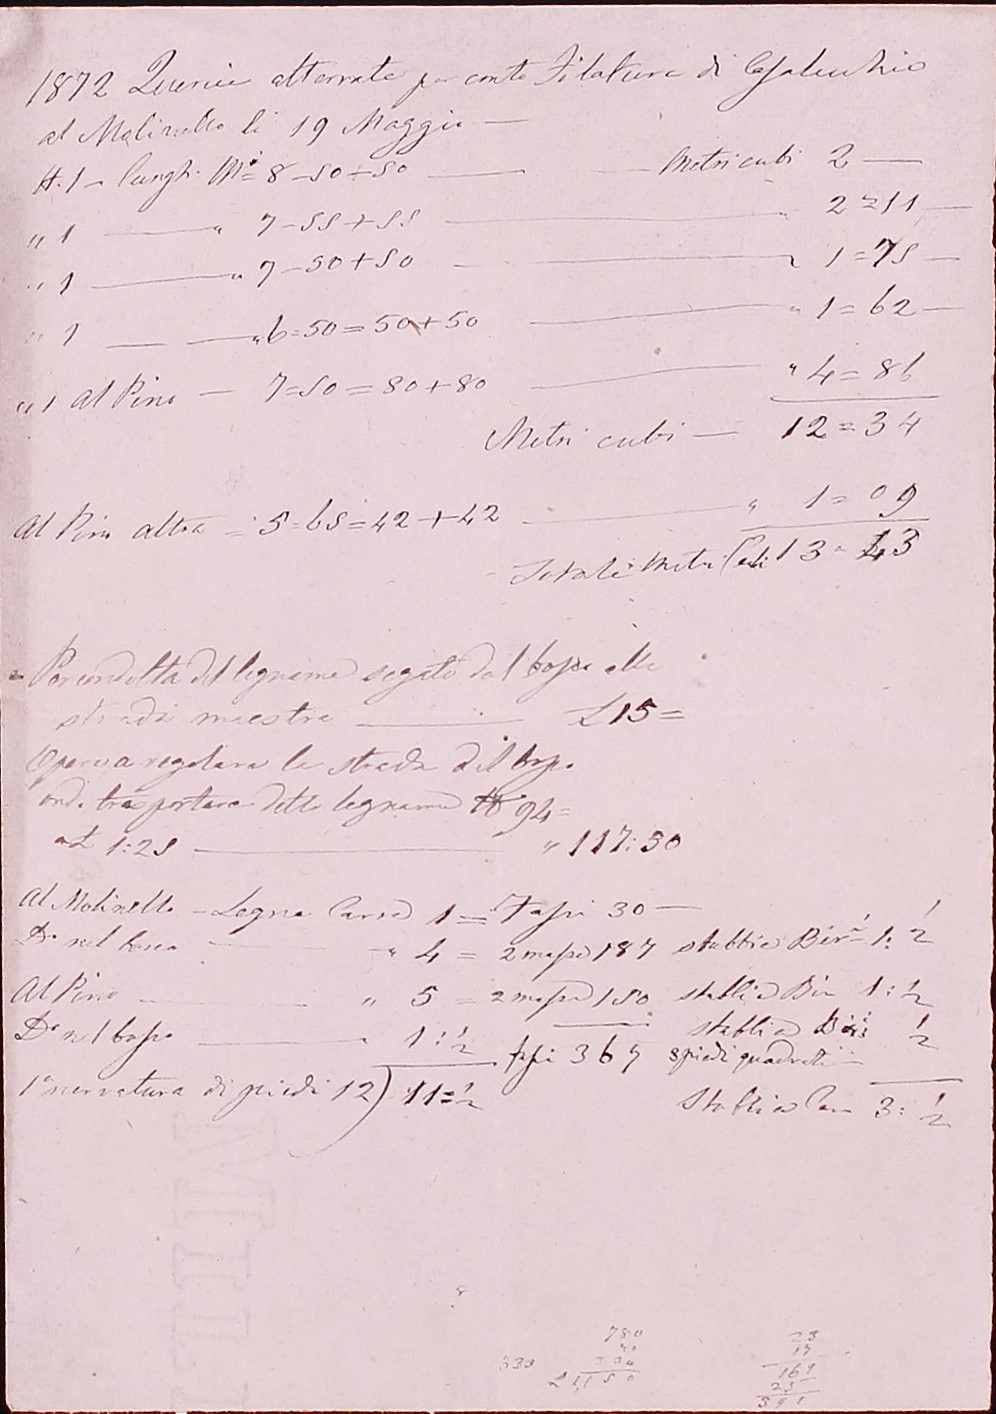 1872 Quercie atterrate per conto Filatura di Casalecchio
al Molinello li 19 Maggio —
N. 1 – lungh. M.i = 8 – 50 + 50 — Metri cubi 2 —
" 1 — " 7 – 55 + 55 — " 2 = 11 —
" 1 — " 7 – 50 + 50 — " 1 = 75 —
" 1 — " 6 = 50 = 50 + 50 — " 1 = 62 —
" 1 al Pino — 7 = 50 = 80 + 80 — " 4 = 86
Metri cubi — 12 = 34
Al Pino altra = 5 = 65 = 42 + 42 — " 1 = 09
Totale Metri Cubi 13 = 43
Per condotta del legname segato dal bosco alla
strada maestra — £ 15 =
Opere a regolare la strada del bosco
onde trasportare detto legname N 94 =
a £ 1:25 — " 117:50
Al Molinello – Legna Carra 1 = Fassi 30 —
D.o nel bosco — " 4 = 2 masse 187 stabbia 1: ½
Al Pino — " 5 = 2 masse 150 stabbia 1: ½
D.o nel bosco — 1: ½ stabbia ½
367 piedi quadrati
di piedi 12) 11 = ½ Stabbia Carra 3: ½
780
23
17
169
23
391